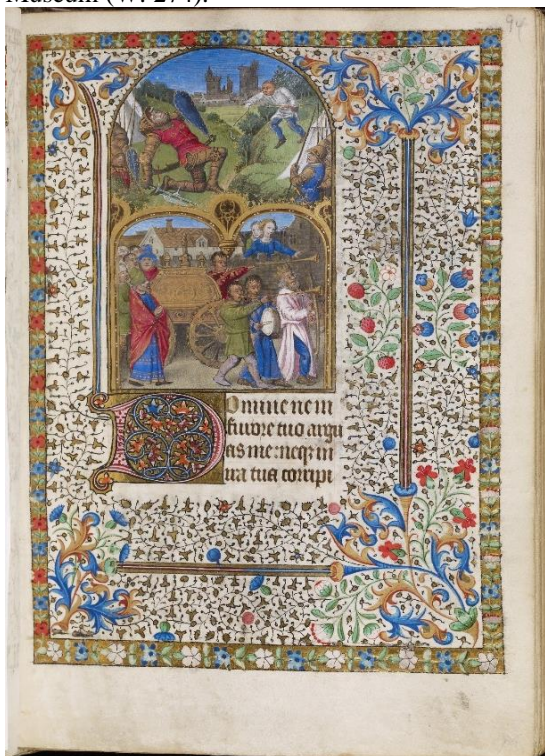 Museum (W. 274).
94
Domine ne in
furore tuo argu
as me: neqȝ in
ira tua corripi